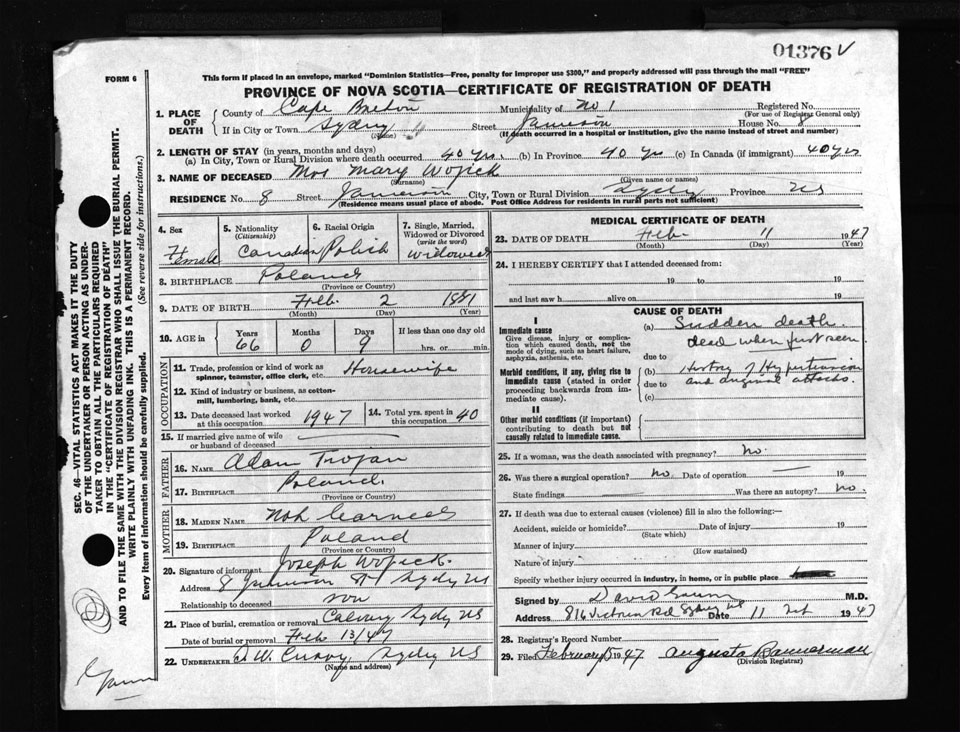 01376 V
FORM 6
This form if placed in an envelope, marked "Dominion Statistics—Free, penalty for improper use $300," and properly addressed will pass through the mail "FREE"
PROVINCE OF NOVA SCOTIA—CERTIFICATE OF REGISTRATION OF DEATH
1. PLACE OF DEATH
County of Cape Breton Municipality of No 1 Registered No.
(For use of Registrar General only)
If in City or Town Sydney Street Jameson House No. 8
(Name) (If death occurred in a hospital or institution, give the name instead of street and number)
2. LENGTH OF STAY (in years, months and days)
(a) In City, Town or Rural Division where death occurred 40 yrs. (b) In Province 40 yrs (c) In Canada (if immigrant) 40 yrs
3. NAME OF DECEASED Mrs Mary Wojick
(Surname) (Given name or names)
RESIDENCE No. 8 Street Jameson City, Town or Rural Division Sydney Province NS
(Residence means usual place of abode. Post Office Address for residents in rural parts not sufficient)
4. Sex
Female
5. Nationality
(Citizenship)
Canadian
6. Racial Origin
Polish
7. Single, Married, Widowed or Divorced
(write the word)
Widowed
8. BIRTHPLACE Poland
(Province or Country)
9. DATE OF BIRTH Feb. 2 1881
(Month) (Day) (Year)
10. AGE in
Years Months Days If less than one day old
66 0 9 hrs. or min.
OCCUPATION
11. Trade, profession or kind of work as Housewife
spinner, teamster, office clerk, etc.
12. Kind of industry or business, as cotton-
mill, lumbering, bank, etc.
13. Date deceased last worked
at this occupation 1947
14. Total yrs. spent in
this occupation 40
15. If married give name of wife
or husband of deceased
FATHER
16. NAME Adam Trojan
17. BIRTHPLACE Poland
(Province or Country)
MOTHER
18. MAIDEN NAME Not
19. BIRTHPLACE Poland
(Province or Country)
20. Signature of informant Joseph Wojick
Address 8 Jameson St Sydney NS
Relationship to deceased son
21. Place of burial, cremation or removal Calvary Sydney NS
Date of burial or removal Feb 13/47
22. UNDERTAKER W. Curry, Sydney NS
(Name and address)
MEDICAL CERTIFICATE OF DEATH
23. DATE OF DEATH Feb. 11 1947
(Month) (Day) (Year)
24. I HEREBY CERTIFY that I attended deceased from:
19 to 19
and last saw h alive on 19
CAUSE OF DEATH
I
Immediate cause
Give disease, injury or complication which caused death, not the mode of dying, such as heart failure, asphyxia, asthenia, etc.
(a) Sudden death.
dead when first seen.
due to
Morbid conditions, if any, giving rise to immediate cause (stated in order proceeding backwards from immediate cause).
(b) History of Hypertension
due to and anginal attacks.
(c)
II
Other morbid conditions (if important) contributing to death but not causally related to immediate cause.
25. If a woman, was the death associated with pregnancy? no.
26. Was there a surgical operation? no. Date of operation 19
State findings Was there an autopsy? no.
27. If death was due to external causes (violence) fill in also the following:—
Accident, suicide or homicide? Date of injury 19
(State which)
Manner of injury
(How sustained)
Nature of injury
Specify whether injury occurred in industry, in home, or in public place
Signed by David M.D.
Address 816 Victoria Rd Sydney Date 11 Feb 1947
28. Registrar's Record Number
29. Filed February 1947 Augusta Bannerman
(Division Registrar)
SEC. 46—VITAL STATISTICS ACT MAKES IT THE DUTY
OF THE UNDERTAKER OR PERSON ACTING AS UNDER-
TAKER TO OBTAIN ALL THE PARTICULARS REQUIRED
IN THE "CERTIFICATE OF REGISTRATION OF DEATH"
AND TO FILE THE SAME WITH THE DIVISION REGISTRAR WHO SHALL ISSUE THE BURIAL PERMIT.
WRITE PLAINLY WITH UNFADING INK. THIS IS A PERMANENT RECORD.
Every item of information should be carefully supplied. (See reverse side for instructions.)